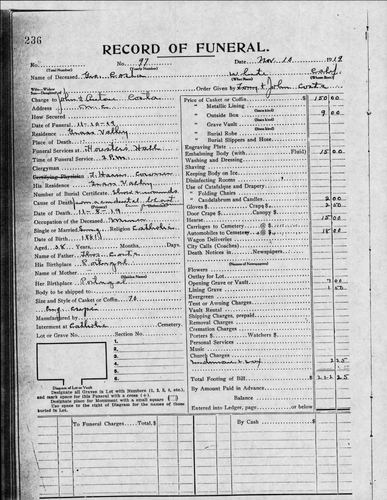 236
RECORD OF FUNERAL.
No. No. 97 Date Nov. 10 1919
(Total Number) (Yearly Number)
Name of Deceased Geo. Costa White
(What Race)
Charge to John & Antone Costa
Order Given by Tony & John Costa
Address
Date of Funeral 11-10-19
Residence Grass Valley
Place of Death
Funeral Services at Hooslers Hall
Time of Funeral Service 2 P.M.
Clergyman
Certifying Physician
His Residence Grass Valley
Number of Burial Certificate
Cause of Death
Date of Death 11-8-19
Occupation of the Deceased Miner
Single or Married Religion Catholic
Date of Birth 1881
Aged 38 Years Months Days
Name of Father
Costa
His Birthplace Portugal
Name of Mother
(Maiden Name)
Her Birthplace Portugal
Body to be shipped to
Size and Style of Casket or Coffin
Manufactured by
Interment at Catholic Cemetery.
Lot or Grave No. Section No.
1
2
3
4
5
6
Diagram of Lot or Vault
Designate all Graves in Lot with Numbers (1, 2, 3, 4, etc.), and mark space for this Funeral with a cross (+)
Designate place for Monument with a small square
Use space to the right of Diagram for the names of those buried in Lot.
Price of Casket or Coffin $ 150 00
" Metallic Lining
(State kind)
" Outside Box 9 00
(State kind)
" Grave Vault
(State kind)
" Burial Robe
" Burial Slippers and Hose
Engraving Plate
Embalming Body (with Fluid) 15 00
Washing and Dressing
Shaving
Keeping Body on Ice
Disinfecting Rooms
Use of Catafalque and Drapery
" Folding Chairs
" Candelabrum and Candles 2 00
Gloves $ Crape $ 2 50
Door Crape $ Canopy $
Hearse 15 00
Carriages to Cemetery @ $
Automobiles to Cemetery @ $ 18 00
Wagon Deliveries
City Calls (Coaches)
Death Notices in Newspapers
(Names of Newspapers)
Flowers
Outlay for Lot
Opening Grave or Vault 7 00
Lining Grave 1 50
Evergreen
Tent or Awning Charges
Vault Rental
Shipping Charges, prepaid
Removal Charges
Cremation Charges
Porters $ Watchers $
Personal Services
Music
Church Charges
2 25
Total Footing of Bill $ 222 25
By Amount Paid in Advance
Balance
Entered into Ledger, page or below:
To Funeral Charges Total $
By Cash $